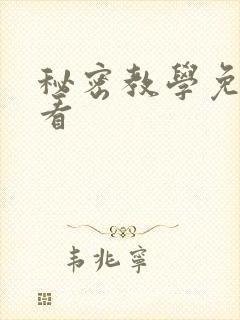 秘密教學免
看
韦兆寧